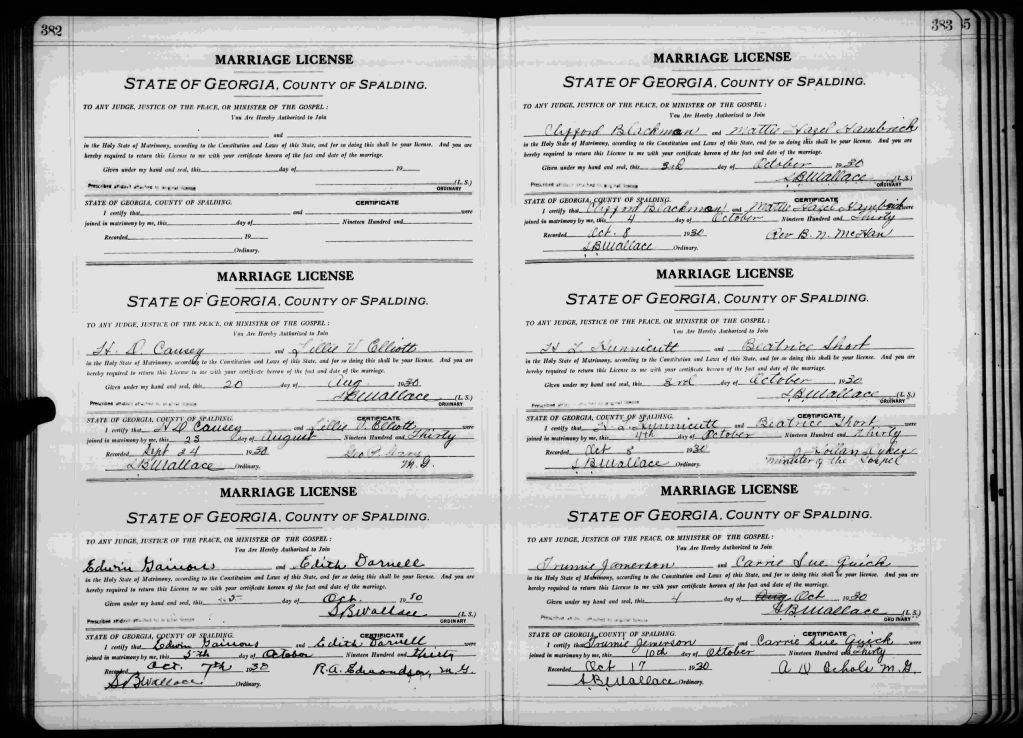 382
MARRIAGE LICENSE
STATE OF GEORGIA, COUNTY OF SPALDING.
TO ANY JUDGE, JUSTICE OF THE PEACE, OR MINISTER OF THE GOSPEL:
You Are Hereby Authorized to Join
and
in the Holy State of Matrimony, according to the Constitution and Laws of this State, and for so doing this shall be your license. And you are
hereby required to return this License to me with your certificate hereon of the fact and date of the marriage.
Given under my hand and seal, this day of 19
(L. S.)
Prescribed affidavit attached to original license ORDINARY
STATE OF GEORGIA, COUNTY OF SPALDING. CERTIFICATE
I certify that and were
joined in matrimony by me, this day of Nineteen Hundred and
Recorded 19
Ordinary.
MARRIAGE LICENSE
STATE OF GEORGIA, COUNTY OF SPALDING.
TO ANY JUDGE, JUSTICE OF THE PEACE, OR MINISTER OF THE GOSPEL:
You Are Hereby Authorized to Join
H. D. Causey and Lillie V Elliott
in the Holy State of Matrimony, according to the Constitution and Laws of this State, and for so doing this shall be your license. And you are
hereby required to return this License to me with your certificate hereon of the fact and date of the marriage.
Given under my hand and seal, this 20 day of Aug 1930
SBWallace (L. S.)
Prescribed affidavit attached to original license ORDINARY
STATE OF GEORGIA, COUNTY OF SPALDING. CERTIFICATE
I certify that H D Causey and Lillie V. Elliott were
joined in matrimony by me, this 23 day of August Nineteen Hundred and Thirty
Recorded Sept 24 1930 Geo
SBWallace Ordinary. M.G.
MARRIAGE LICENSE
STATE OF GEORGIA, COUNTY OF SPALDING.
TO ANY JUDGE, JUSTICE OF THE PEACE, OR MINISTER OF THE GOSPEL:
You Are Hereby Authorized to Join
Edwin Gainous and Edith Darnell
in the Holy State of Matrimony, according to the Constitution and Laws of this State, and for so doing this shall be your license. And you are
hereby required to return this License to me with your certificate hereon of the fact and date of the marriage.
Given under my hand and seal, this 5 day of Oct. 1930
SBWallace (L. S.)
Prescribed affidavit attached to original license ORDINARY
STATE OF GEORGIA, COUNTY OF SPALDING. CERTIFICATE
I certify that Edwin Gainous and Edith Darnell were
joined in matrimony by me, this 5th day of October Nineteen Hundred and thirty
Recorded Oct. 7th 1930 R.A. Edmondson, M.G.
SBWallace Ordinary.
383
MARRIAGE LICENSE
STATE OF GEORGIA, COUNTY OF SPALDING.
TO ANY JUDGE, JUSTICE OF THE PEACE, OR MINISTER OF THE GOSPEL:
You Are Hereby Authorized to Join
Clifford Blackmon and Mattie Hazel Hambrick
in the Holy State of Matrimony, according to the Constitution and Laws of this State, and for so doing this shall be your license. And you are
hereby required to return this License to me with your certificate hereon of the fact and date of the marriage.
Given under my hand and seal, this 3rd day of October 1930
SBWallace (L. S.)
Prescribed affidavit attached to original license ORDINARY
STATE OF GEORGIA, COUNTY OF SPALDING. CERTIFICATE
I certify that Clifford Blackmon and Mattie Hazel Hambrick were
joined in matrimony by me, this 4 day of October Nineteen Hundred and Thirty
Recorded Oct. 8 1930 Rev B. N. McHan
SBWallace Ordinary.
MARRIAGE LICENSE
STATE OF GEORGIA, COUNTY OF SPALDING.
TO ANY JUDGE, JUSTICE OF THE PEACE, OR MINISTER OF THE GOSPEL:
You Are Hereby Authorized to Join
H L Hunnicutt and Beatrice Short
in the Holy State of Matrimony, according to the Constitution and Laws of this State, and for so doing this shall be your license. And you are
hereby required to return this License to me with your certificate hereon of the fact and date of the marriage.
Given under my hand and seal, this 3rd day of October 1930
SBWallace (L. S.)
Prescribed affidavit attached to original license ORDINARY
STATE OF GEORGIA, COUNTY OF SPALDING. CERTIFICATE
I certify that H L Hunnicutt and Beatrice Short were
joined in matrimony by me, this 4th day of October Nineteen Hundred and Thirty
Recorded Oct 8 1930 Dykes
SBWallace Ordinary. Minister of the Gospel
MARRIAGE LICENSE
STATE OF GEORGIA, COUNTY OF SPALDING.
TO ANY JUDGE, JUSTICE OF THE PEACE, OR MINISTER OF THE GOSPEL:
You Are Hereby Authorized to Join
Trumie Jamerson and Carrie Sue Quick
in the Holy State of Matrimony, according to the Constitution and Laws of this State, and for so doing this shall be your license. And you are
hereby required to return this License to me with your certificate hereon of the fact and date of the marriage.
Given under my hand and seal, this 4 day of Oct 1930
SBWallace (L. S.)
Prescribed affidavit attached to original license ORDINARY
STATE OF GEORGIA, COUNTY OF SPALDING. CERTIFICATE
I certify that Trumie Jemerson and Carrie Sue Quick were
joined in matrimony by me, this 10th day of October Nineteen Hundred and Thirty
Recorded Oct 17 1930 A D Echols M.G.
SBWallace Ordinary.